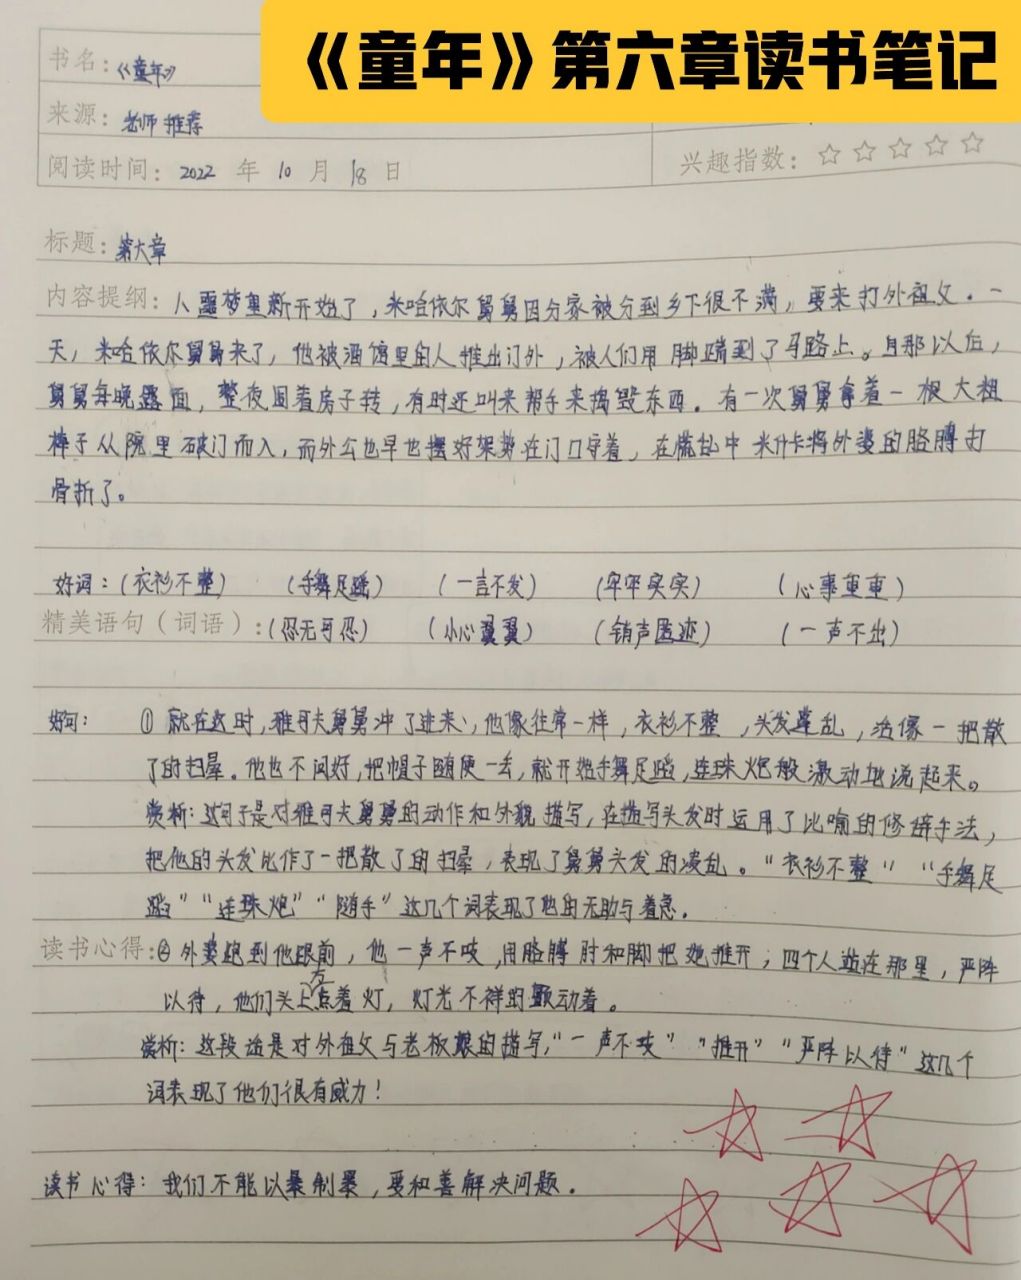 《童年》第六章读书笔记
书名:《童年》
来源:老师推荐
阅读时间:2022年10月18日
兴趣指数:☆☆☆☆☆
标题:第六章
内容提纲:人噩梦重新开始了,米哈依尔舅舅因分家被分到乡下很不满,要来打外祖父。一
天,米哈依尔舅舅来了,他被酒馆里的人推出门外,被人们用脚踹到了马路上。自那以后,
舅舅每晚露面,整夜围着房子转,有时还叫来帮手来捣毁东西。有一次舅舅拿着一根大粗
棒子从院里破门而入,而外公也早也摆好架势在门口守着,在慌乱中米什卡将外婆的胳膊打
骨折了。
好词:(衣衫不整) (手舞足蹈) (一言不发) (牢牢实实) (心事重重)
精美语句(词语):(忍无可忍) (小心翼翼) (销声匿迹) (一声不出)
好句: ①就在这时,雅可夫舅舅冲了进来,他像往常一样,衣衫不整,头发蓬乱,活像一把散
了的扫晕。他也不问好,把帽子随便一丢,就开始手舞足蹈,连珠炮般激动地说起来。
赏析:这句子是对雅可夫舅舅的动作和外貌描写,在描写头发时运用了比喻的修辞手法,
把他的头发比作了一把散了的扫晕,表现了舅舅头发的凌乱。"衣衫不整" "手舞足
蹈" "连珠炮" "随手"这几个词表现了他的无助与着急。
读书心得:②外婆跑到他跟前,他一声不吱,用胳膊肘和脚把她推开;四个人站在那里,严阵
以待,他们头上方点着灯,灯光不祥的颤动着。
赏析:这段话是对外祖父与老板娘的描写,"一声不吱" "推开" "严阵以待"这几个
词表现了他们很有威力!
读书心得:我们不能以暴制暴,要和善解决问题。